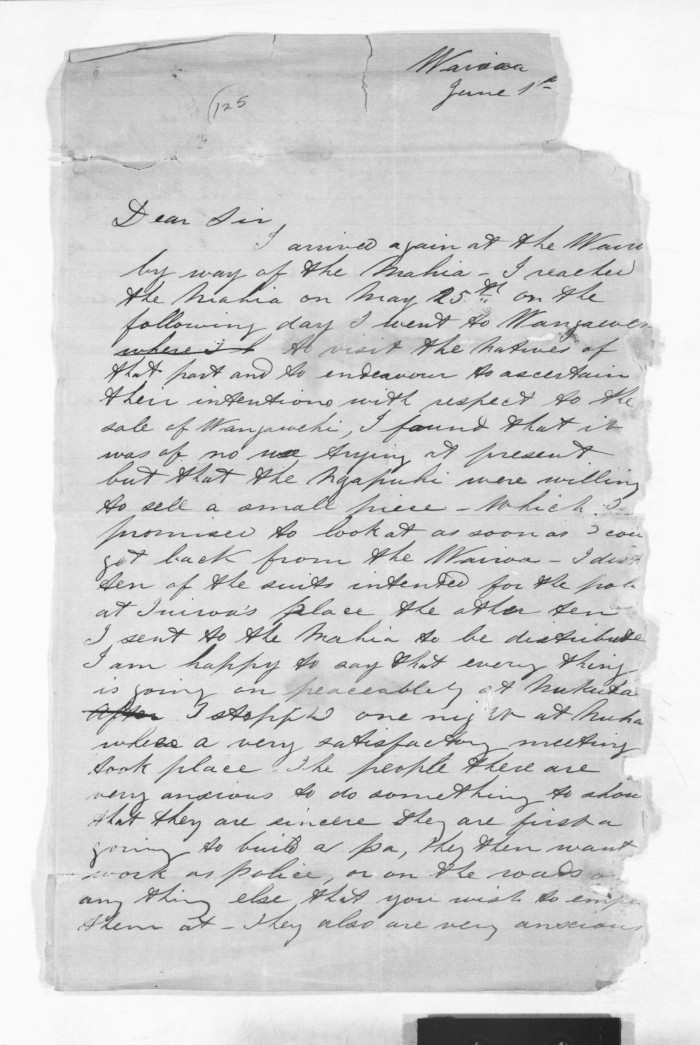 Wairoa
June 1st
(125
Dear Sir,
I arrived again at the Wairo
by way of the Mahia - I reached
the Mahia on May 25th on the
following day I went to Wangawe
where I to visit the natives of
that part and to endeavour to ascertain
their intentions with respect to the
sale of Wangawehi, I found that it
was of no use trying at present
but that the Ngapuhi were willing
to sell a small piece - which I
promised to look at as soon as I cou
got back from the Wairoa - I dist
ten of the suits intended for the pol
at place the other ten
I sent to the Mahia to be distribute
I am happy to say that every thing
is going on peaceably at
after I stopped one night at Nuha
where a very satisfactory meeting
took place. The people there are
very anxious to do something to show
that they are sincere they are first a
going to build a pa, they then want
work as police, or on the roads o
any thing else, that you wish to emp
them at - They also are very anxious